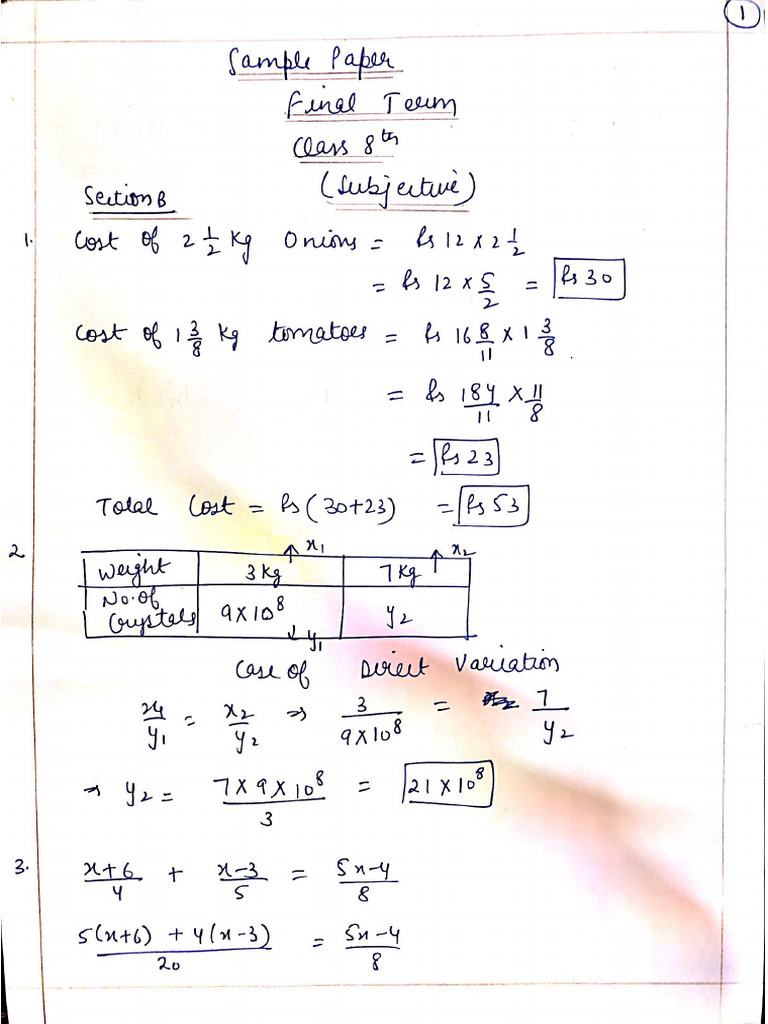 1
Sample Paper
Final Term
Class 8th
(Subjective)
Section B
1. Cost of 2 1/2 Kg Onions = Rs 12 x 2 1/2
= Rs 12 x 5/2 = Rs 30
Cost of 1 3/8 Kg tomatoes = Rs 16 8/11 x 1 3/8
= Rs 184/11 x 11/8
= Rs 23
Total Cost = Rs (30+23) = Rs 53
2. x1 x2
Weight 3 Kg 7 Kg
No. of Crystals 9 x 10^8 y2
y1
Case of Direct Variation
x1/y1 = x2/y2 ⇒ 3/(9 x 10^8) = 7/y2
⇒ y2 = (7 x 9 x 10^8)/3 = 21 x 10^8
3. (x+6)/4 + (x-3)/5 = (5x-4)/8
(5(x+6) + 4(x-3))/20 = (5x-4)/8